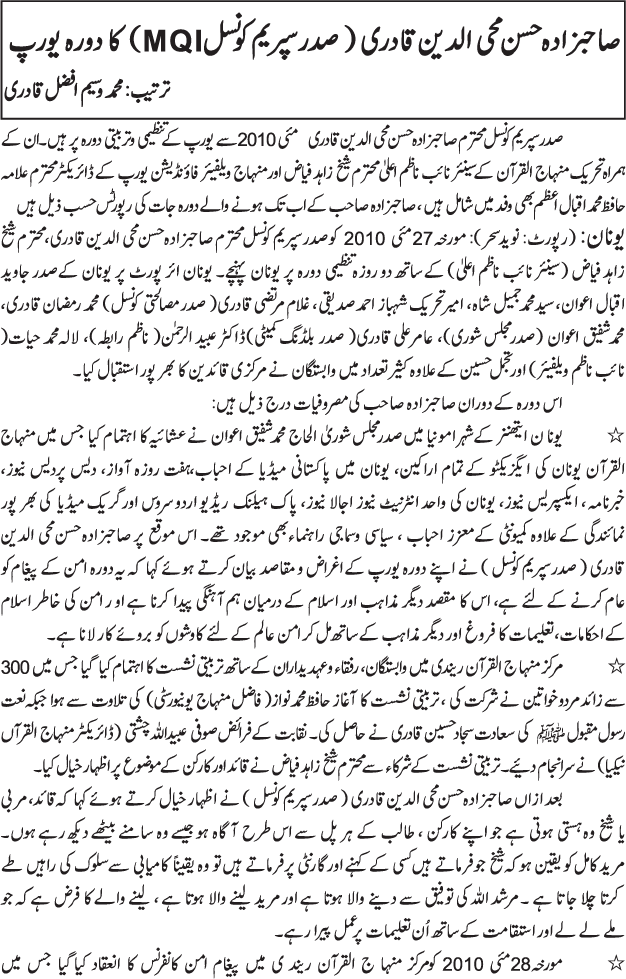 صاحبزادہ حسن محی الدین قادری (صدر سپریم کونسل MQI) کا دورہ یورپ
ترتیب: محمد وسیم افضل قادری
صدر سپریم کونسل محترم صاحبزادہ حسن محی الدین قادری مئی 2010 سے یورپ کے تنظیمی و تربیتی دورہ پر ہیں۔ ان کے
ہمراہ تحریک منہاج القرآن کے سینئر نائب ناظم اعلیٰ محترم شیخ زاہد فیاض اور منہاج ویلفیئر فاؤنڈیشن یورپ کے ڈائریکٹر محترم علامہ
حافظ محمد اقبال اعظم بھی وفد میں شامل ہیں، صاحبزادہ صاحب کے اب تک ہونے والے دورہ جات کی رپورٹس حسب ذیل ہیں
یونان: (رپورٹ: نوید سحر): مورخہ 27 مئی 2010 کو صدر سپریم کونسل محترم صاحبزادہ حسن محی الدین قادری، محترم شیخ
زاہد فیاض (سینئر نائب ناظم اعلیٰ) کے ساتھ دو روزہ تنظیمی دورہ پر یونان پہنچے۔ یونان ائر پورٹ پر یونان کے صدر جاوید
اقبال اعوان، سید محمد جمیل شاہ، امیر تحریک شہباز احمد صدیقی، غلام مرتضی قادری (صدر مصالحتی کونسل) محمد رمضان قادری،
محمد شفیق اعوان (صدر مجلس شوری)، عامر علی قادری (صدر بلڈنگ کمیٹی) ڈاکٹر عبید الرحمٰن (ناظم رابطہ)، لالہ محمد حیات (
نائب ناظم ویلفیئر) اور تجمل حسین کے علاوہ کثیر تعداد میں وابستگان نے مرکزی قائدین کا بھر پور استقبال کیا۔
اس دورہ کے دوران صاحبزادہ صاحب کی مصروفیات درج ذیل ہیں:
☆ یونان ایتھنز کے شہر امونیا میں صدر مجلس شوریٰ الحاج محمد شفیق اعوان نے عشائیہ کا اہتمام کیا جس میں منہاج
القرآن یونان کی ایگزیکٹو کے تمام اراکین، یونان میں پاکستانی میڈیا کے احباب، ہفت روزہ آواز، دیس پردیس نیوز،
خبرنامہ، ایکسپریس نیوز، یونان کی واحد انٹرنیٹ نیوز اجالا نیوز، پاک ہیلنک ریڈیو اردو سروس اور گریک میڈیا کی بھر پور
نمائندگی کے علاوہ کمیونٹی کے معزز احباب، سیاسی وسماجی راہنماء بھی موجود تھے۔ اس موقع پر صاحبزادہ حسن محی الدین
قادری (صدر سپریم کونسل) نے اپنے دورہ یورپ کے اغراض و مقاصد بیان کرتے ہوئے کہا کہ یہ دورہ امن کے پیغام کو
عام کرنے کے لئے ہے، اس کا مقصد دیگر مذاہب اور اسلام کے درمیان ہم آہنگی پیدا کرنا ہے اور امن کی خاطر اسلام
کے احکامات، تعلیمات کا فروغ اور دیگر مذاہب کے ساتھ مل کر امن عالم کے لئے کاوشوں کو بروئے کار لانا ہے۔
☆ مرکز منہاج القرآن رینڈی میں وابستگان، رفقاء وعہدیداران کے ساتھ تربیتی نشست کا اہتمام کیا گیا جس میں 300
سے زائد مرد و خواتین نے شرکت کی، تربیتی نشست کا آغاز حافظ محمد نواز (فاضل منہاج یونیورسٹی) کی تلاوت سے ہوا جبکہ نعت
رسول مقبول ﷺ کی سعادت سجاد حسین قادری نے حاصل کی۔ نقابت کے فرائض صوفی عبیداللہ چشتی (ڈائریکٹر منہاج القرآن
نیکیا) نے سرانجام دئیے۔ تربیتی نشست کے شرکاء سے محترم شیخ زاہد فیاض نے قائد اور کارکن کے موضوع پر اظہار خیال کیا۔
بعد ازاں صاحبزادہ حسن محی الدین قادری (صدر سپریم کونسل) نے اظہار خیال کرتے ہوئے کہا کہ قائد، مربی
یا شیخ وہ ہستی ہوتی ہے جو اپنے کارکن، طالب کے ہر پل سے اس طرح آگاہ ہو جیسے وہ سامنے بیٹھے دیکھ رہے ہوں۔
مرید کامل کو یقین ہو کہ شیخ جو فرماتے ہیں کسی کے کہنے اور گارنٹی پر فرماتے ہیں تو وہ یقیناً کامیابی سے سلوک کی راہیں طے
کرتا چلا جاتا ہے۔ مرشد اللہ کی توفیق سے دینے والا ہوتا ہے اور مرید لینے والا ہوتا ہے، لینے والے کا فرض ہے کہ جو
ملے لے لے اور استقامت کے ساتھ اُن تعلیمات پر عمل پیرا رہے۔
☆ مورخہ 28 مئی 2010 کو مرکز منہاج القرآن رینڈی میں پیغام امن کانفرنس کا انعقاد کیا گیا جس میں